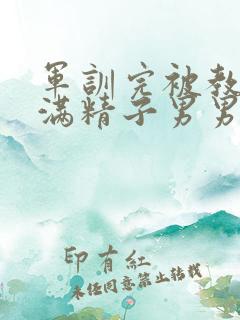 軍訓完被教
滿精子男男
印有紅
未經同意禁止轉載